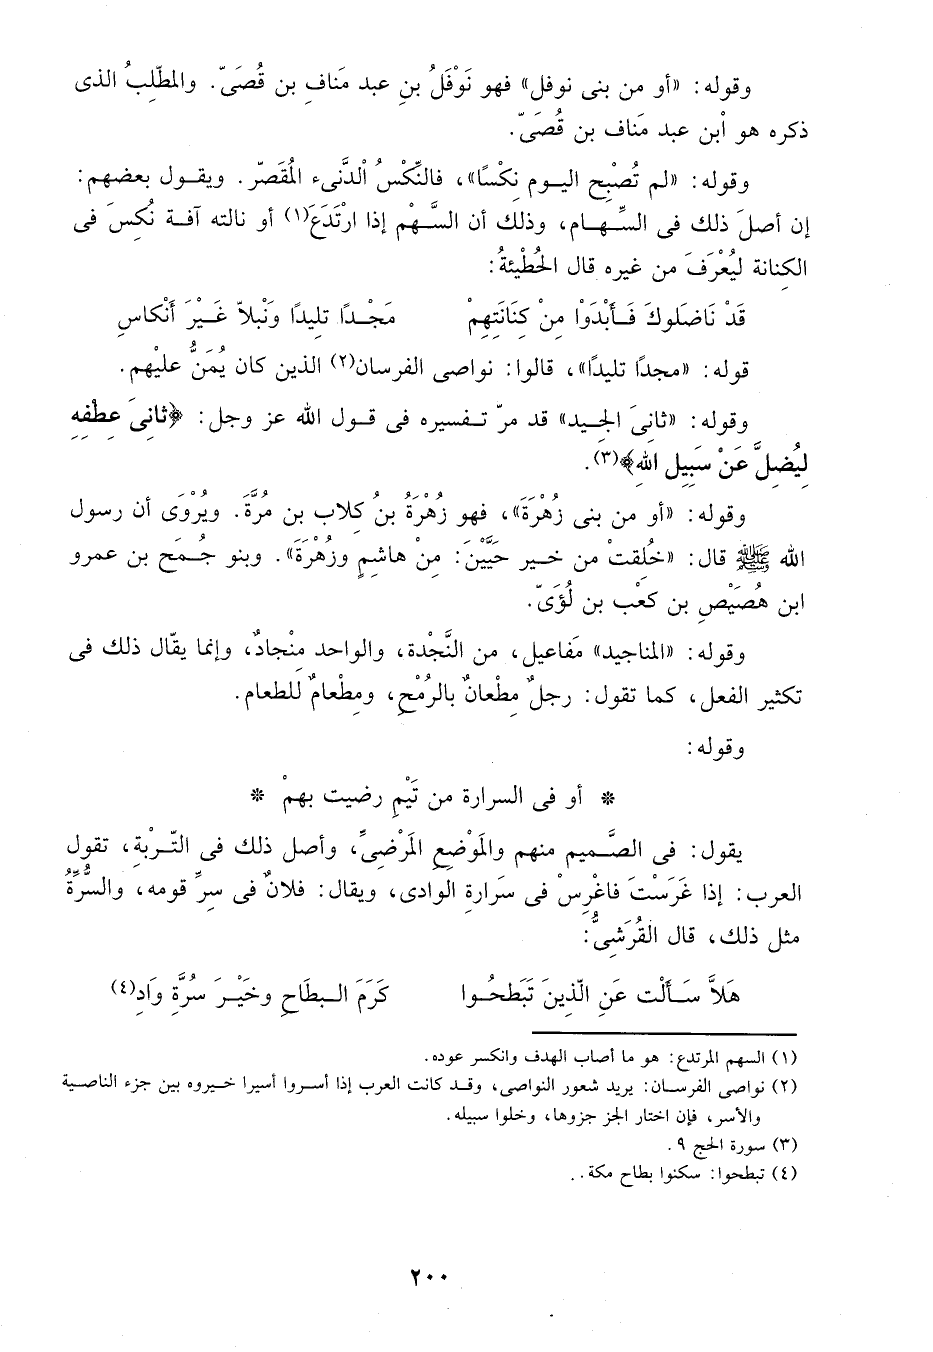 وقوله: «أو من بنى نوفل» فهو نَوْفَلُ بنِ عبد مَناف بن قُصَىّ. والمطَّلِبُ الذى
ذكره هو اْبن عبد مَناف بن قُصَىّ.
وقوله: «لم تُصْبِح اليوم نِكْسًا»، فالنِّكْسُ اْلدَّنىء المُقَصِّر. ويقول بعضهم:
إن أصلَ ذلك فى السِّهام، وذلك أن السَّهْم إذا ارْتَدَعَ(١) أو نالته آفة نُكِسَ فى
الكنانة لِيُعْرَفَ من غيره قال الحُطْيئةُ:
قَدْ نَاضَلوكَ فَأبْدَوْا مِنْ كِنَانَتِهِمْ    مَجْدًا تليدًا ونَبْلاً غَيْرَ أَنْكاسِ
قوله: «مجدًا تليدًا»، قالوا: نواصى الفرسان(٢) الذين كان يُمَنُّ عليْهم.
وقوله: «ثانىَ الجِيد» قد مرّ تفسيره فى قول الله عز وجل: ﴿ثانىَ عِطفِهِ
لِيُضِلَّ عَنْ سَبِيلِ اللهِ﴾(٣).
وقوله: «أو من بنى زُهْرَةَ»، فهو زُهْرَةُ بنُ كِلاب بن مُرَّةَ. ويُرْوَى أن رسول
الله ﷺ قال: «خُلِقتْ من خير حَيَّيْنِ: مِنْ هاشِمٍ وزُهْرَةَ». وبنو جُمَح بن عمرو
ابن هُصَيْصِ بن كَعْب بن لُؤَىّ.
وقوله: «المناجيد» مَفاعيل، من النَّجْدة، والواحد مِنْجادٌ، وإنما يقال ذلك فى
تكثير الفعل، كما تقول: رجلٌ مِطْعانٌ بالرُمْحِ، ومِطْعامٌ للطعام.
وقوله:
* أو فى السرارة من تَيْمٍ رضيت بهمْ *
يقول: فى الصَّميم منهم والمَوْضِعِ المَرْضِىِّ، وأصل ذلك فى التّرْبةِ، تقول
العرب: إذا غَرَسْتَ فاغْرِسْ فى سَرارةِ الوادى، ويقال: فلانٌ فى سِرِّ قومه، والسُّرَّةُ
مثل ذلك، قال القُرَشِىُّ:
هَلاَّ سَألْت عَنِ الّذينَ تَبَطحُوا    كَرَمَ البِطَاحِ وخَيْرَ سُرَّةِ وَادِ(٤)
(١) السهم المرتدع: هو ما أصاب الهدف وانكسر عوده.
(٢) نواصى الفرسان: يريد شعور النواصى، وقد كانت العرب إذا أسروا أسيرا خيروه بين جزء الناصية
والأسر، فإن اختار الجز جزوها، وخلوا سبيله.
(٣) سورة الحج ٩.
(٤) تبطحوا: سكنوا بطاح مكة..
٢٠٠